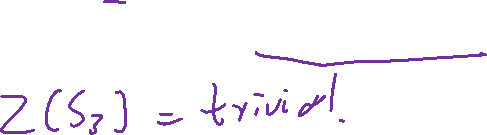 Z(S₃) = trivial.